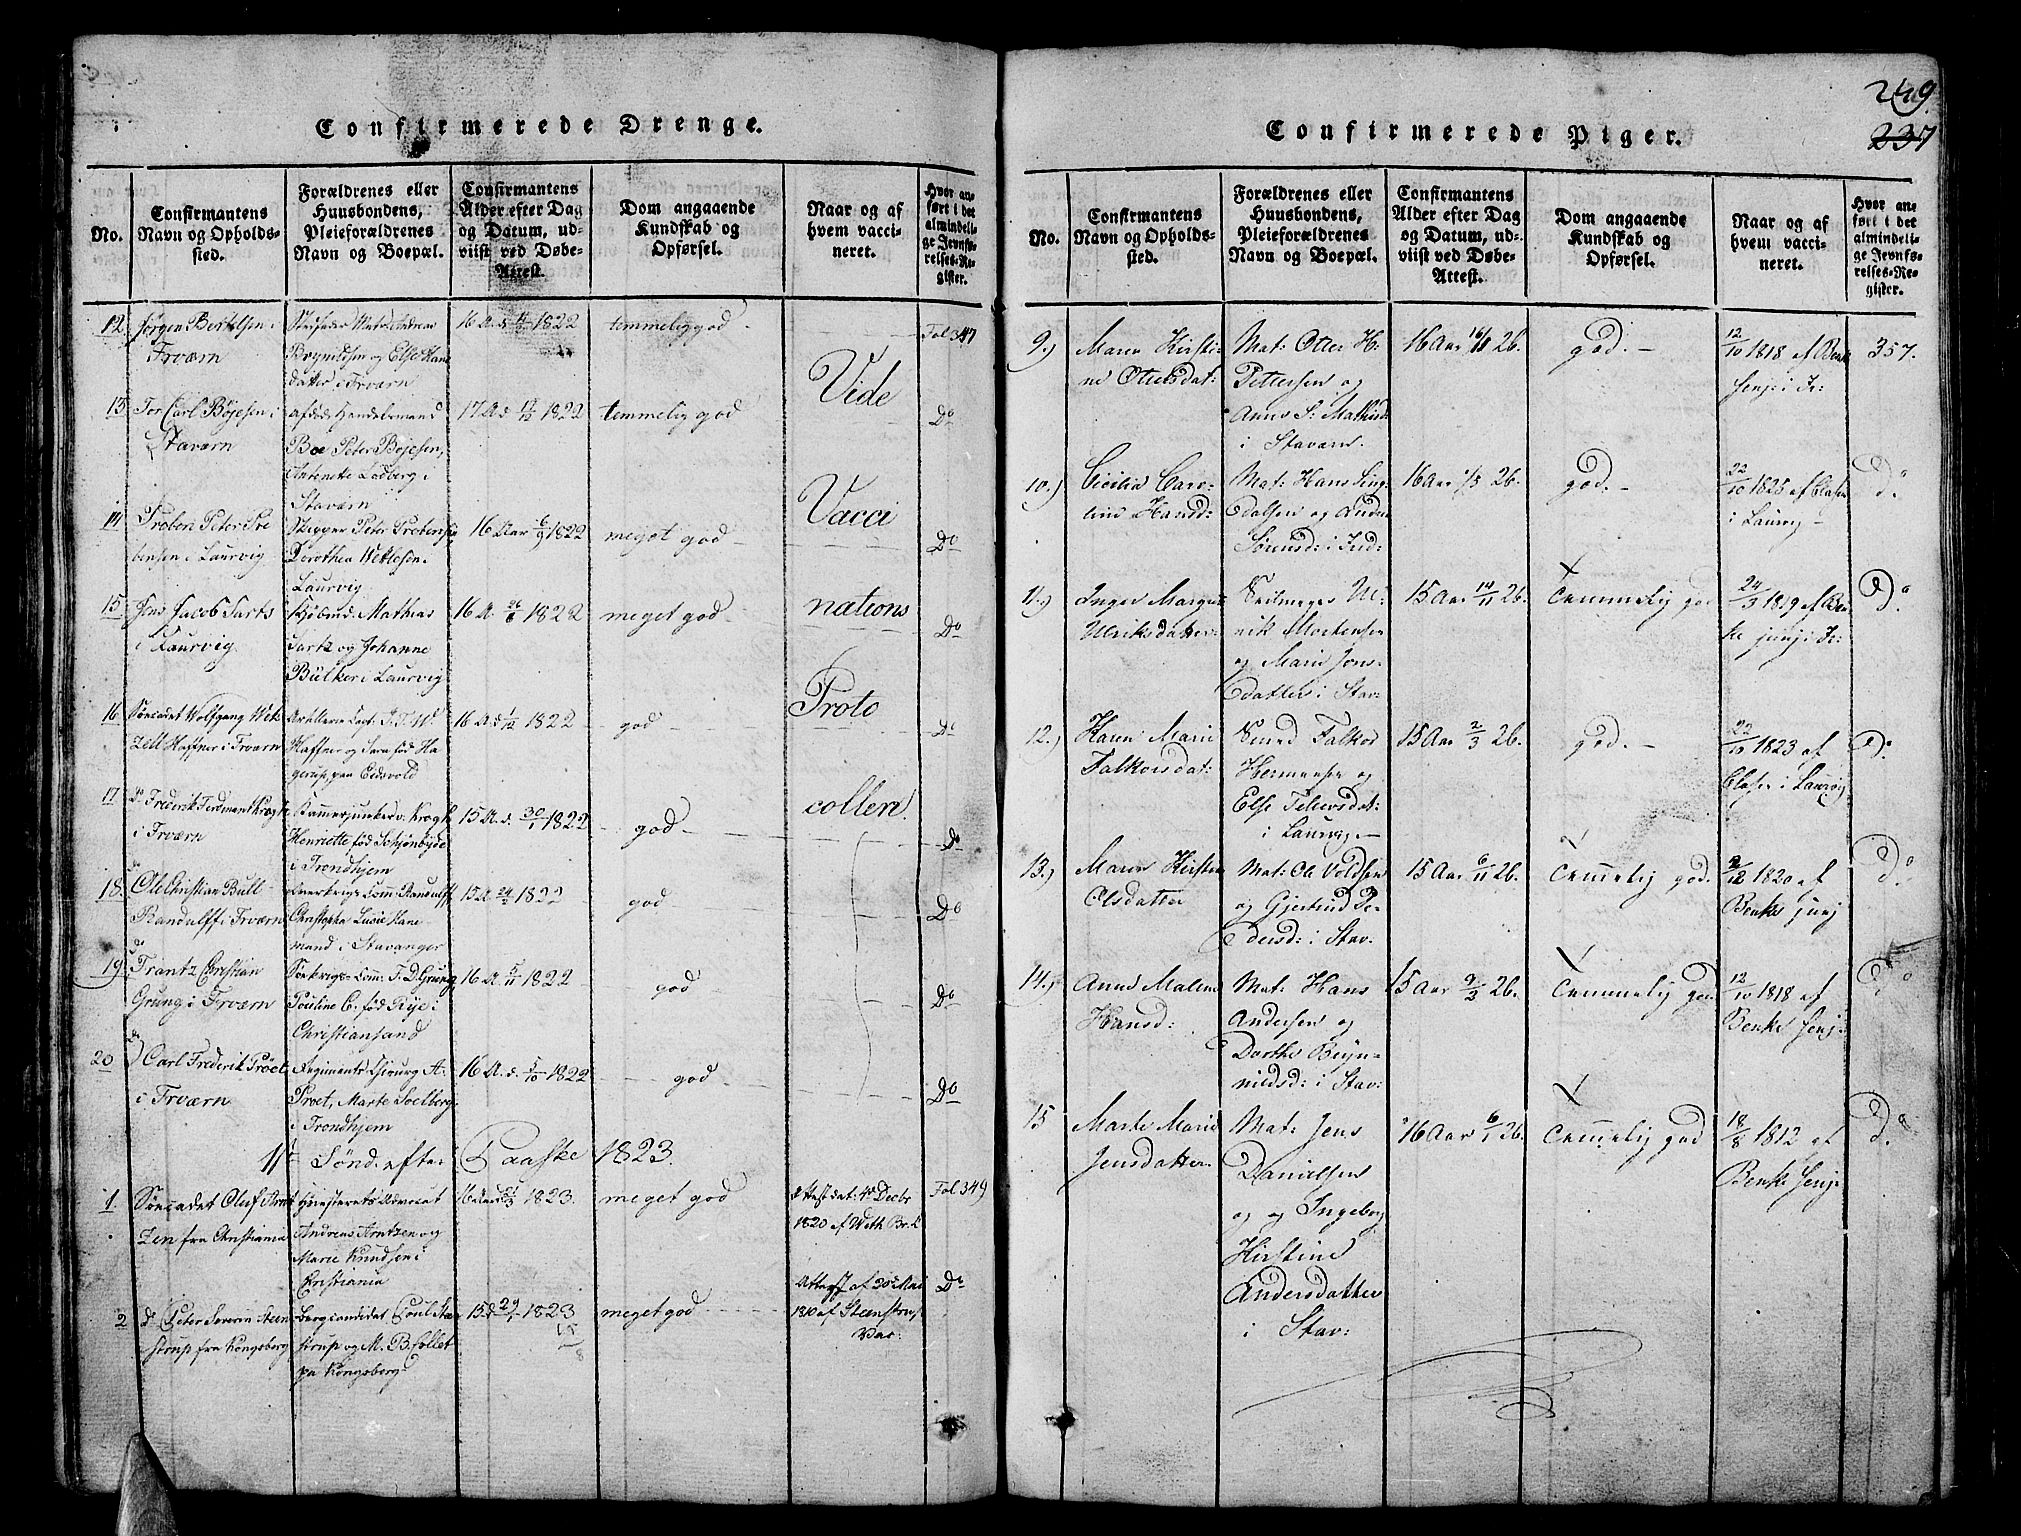 Confirmerede Drenge.
No.
Confirmantens
Navn og Opholds-
sted.
Forældrenes eller
Huusbondens,
Pleieforældrenes
Navn og Boepæl.
Confirmantens
Alder efter Dag
og Datum, ud-
viist ved Døbe-
Attest.
Dom angaaende
Kundskab og
Opførsel.
Naar og af
hvem vacci-
neret.
Hvor an-
ført i det
almindeli-
ge Jevnfø-
relses-Re-
gister.
12
Jørgen Bertelsen i
Frværn
og Else
datter i Frværn
16 A. d. 1822
temmelig god
Fol 347
13
Tor Carl Böjesen i
Staværn
Boe Peter Böjesen,
Antonette Lodberg i
Staværn
17 A. d. 1822
temmelig god
Vide
Do
14
Preben Peter Pre
bensen i Laurvig
Skipper Peter Prebensen
Dorothea Wetlesen i
Laurvig
16 Aar 6/9 1822
meget god
Vacci
Do
15
Jens Jacob Sartz
i Laurvig
Mathias
Sartz og Johanne
Bülker i Laurvig
16 A. 1822
meget god
nations
Do
16
Søecadet Wolfgang Wet
zell Haffner i Frværn
Artillerie Capt:
Haffner og Sara fød Ha
gerup paa Eidsvold
16 A. d. 1822
god
Proto
Do
17
do Frederik Ferdinant Krogh
i Frværn
Kammerjunker v. Krogh
Henriette fød Schjönbyde
i Trondhjem
15 A. d. 30/1 1822
god
collen.
Do
18
do
Ole Christian Bull
Randulff i Frværn
Overkrigs-Comm: Randulff
Christopha Lucie Hane
mand i Stavanger
15 A 1822
god
Do
19
do
Frantz Christian
Grung i Frværn
Søekrigs-Comm: F. D. Grung,
Pouline C. fød Rye i
Christiansand
16 A. 5/11 1822
god
Do
20
do
Carl Frederik Pröet
i Frværn
Regiments Chirurg A.
Proet, Marte Soelberg
i Trondhjem
16 A. d. 5/10 1822
god
Do
11te Sönd. efter Paaske 1823.
1
Söecadet Oluf Arnt
zen fra Christiania
Höiesterets Advocat
Andreas Arntzen og
Marie Knudsen i
Christiania
16 Aar 1823.
meget god
Attest dat: 4d Decbr
1820 af With
Fol 349
2
do Peter Severin Steen
strup fra Kongsberg
Bergcandidat Poul Steen
strup og M. B. Collet
paa Kongsberg
15 d 29/1 1823
meget god
Attest af 20d Mai
1810 af Steenstrup
Do
249.
237
Confirmerede Piger.
No.
Confirmantens
Navn og Opholds-
sted.
Forældrenes eller
Huusbondens,
Pleieforældrenes
Navn og Boepæl.
Confirmantens
Alder efter Dag
og Datum, ud-
viist ved Døbe-
Attest.
Dom angaaende
Kundskab og
Opførsel.
Naar og af
hvem vacci-
neret.
Hvor an-
ført i det
almindeli-
ge Jevnfø-
relses-Re-
gister.
9.)
Maren Kirsti-
ne Ottersdat:
Mat: Otter H.
Pettersen og
Anne S: Mathisd:
i Stavern.
16 Aar 16/11 26.
god.
12/10 1818 af Benke
senj: i Fr:
357.
10.)
Cicilia Caro-
line Hansd:
Mat: Hans Ling
dalsen og
Sørensd: i Fred:
16 Aar 1/5 26.
god.
22/10 1825 af Clasen
i Laurvig
do
11.)
Inger Margre
Ulriksdatter
Seilmager Ul-
rik Mortensen
og Marie Jons-
datter i Stav:
15 Aar 14/11 26.
Temmelig god
24/3 1819 af Ben
ke junj: i Fr:
do
12.)
Karen Marie
Falkorsdat:
Smed Falkor
Hermansen og
Else Tellersdat:
i Laurvig.
15 Aar 2/3 26.
god.
22/10 1823 af
Clasen i Laurvig
do
13.)
Maren Kirstine
Olsdatter
Mat: Ole Voldsen
og Gjertrud Pe-
dersd: i Stav:
15 Aar 6/11 26.
Temmelig god.
2/12 1820 af
Benke junj
do
14.)
Anne Malene
Hansd:
Mat: Hans
Andersen og
Dorthe Beÿn-
nildsd: i Stav:
15 Aar 9/3 26.
Temmelig god
12/10 1818 af
Benke senj:
do
15
Marte Marie
Jensdatter
Mat: Jens
Danielsen
og Ingeborg
Kirstine
Andersdatter
i Stav:
16 Aar 6/1 26.
Temmelig god
18/8 1812 af
Benke senj:
do